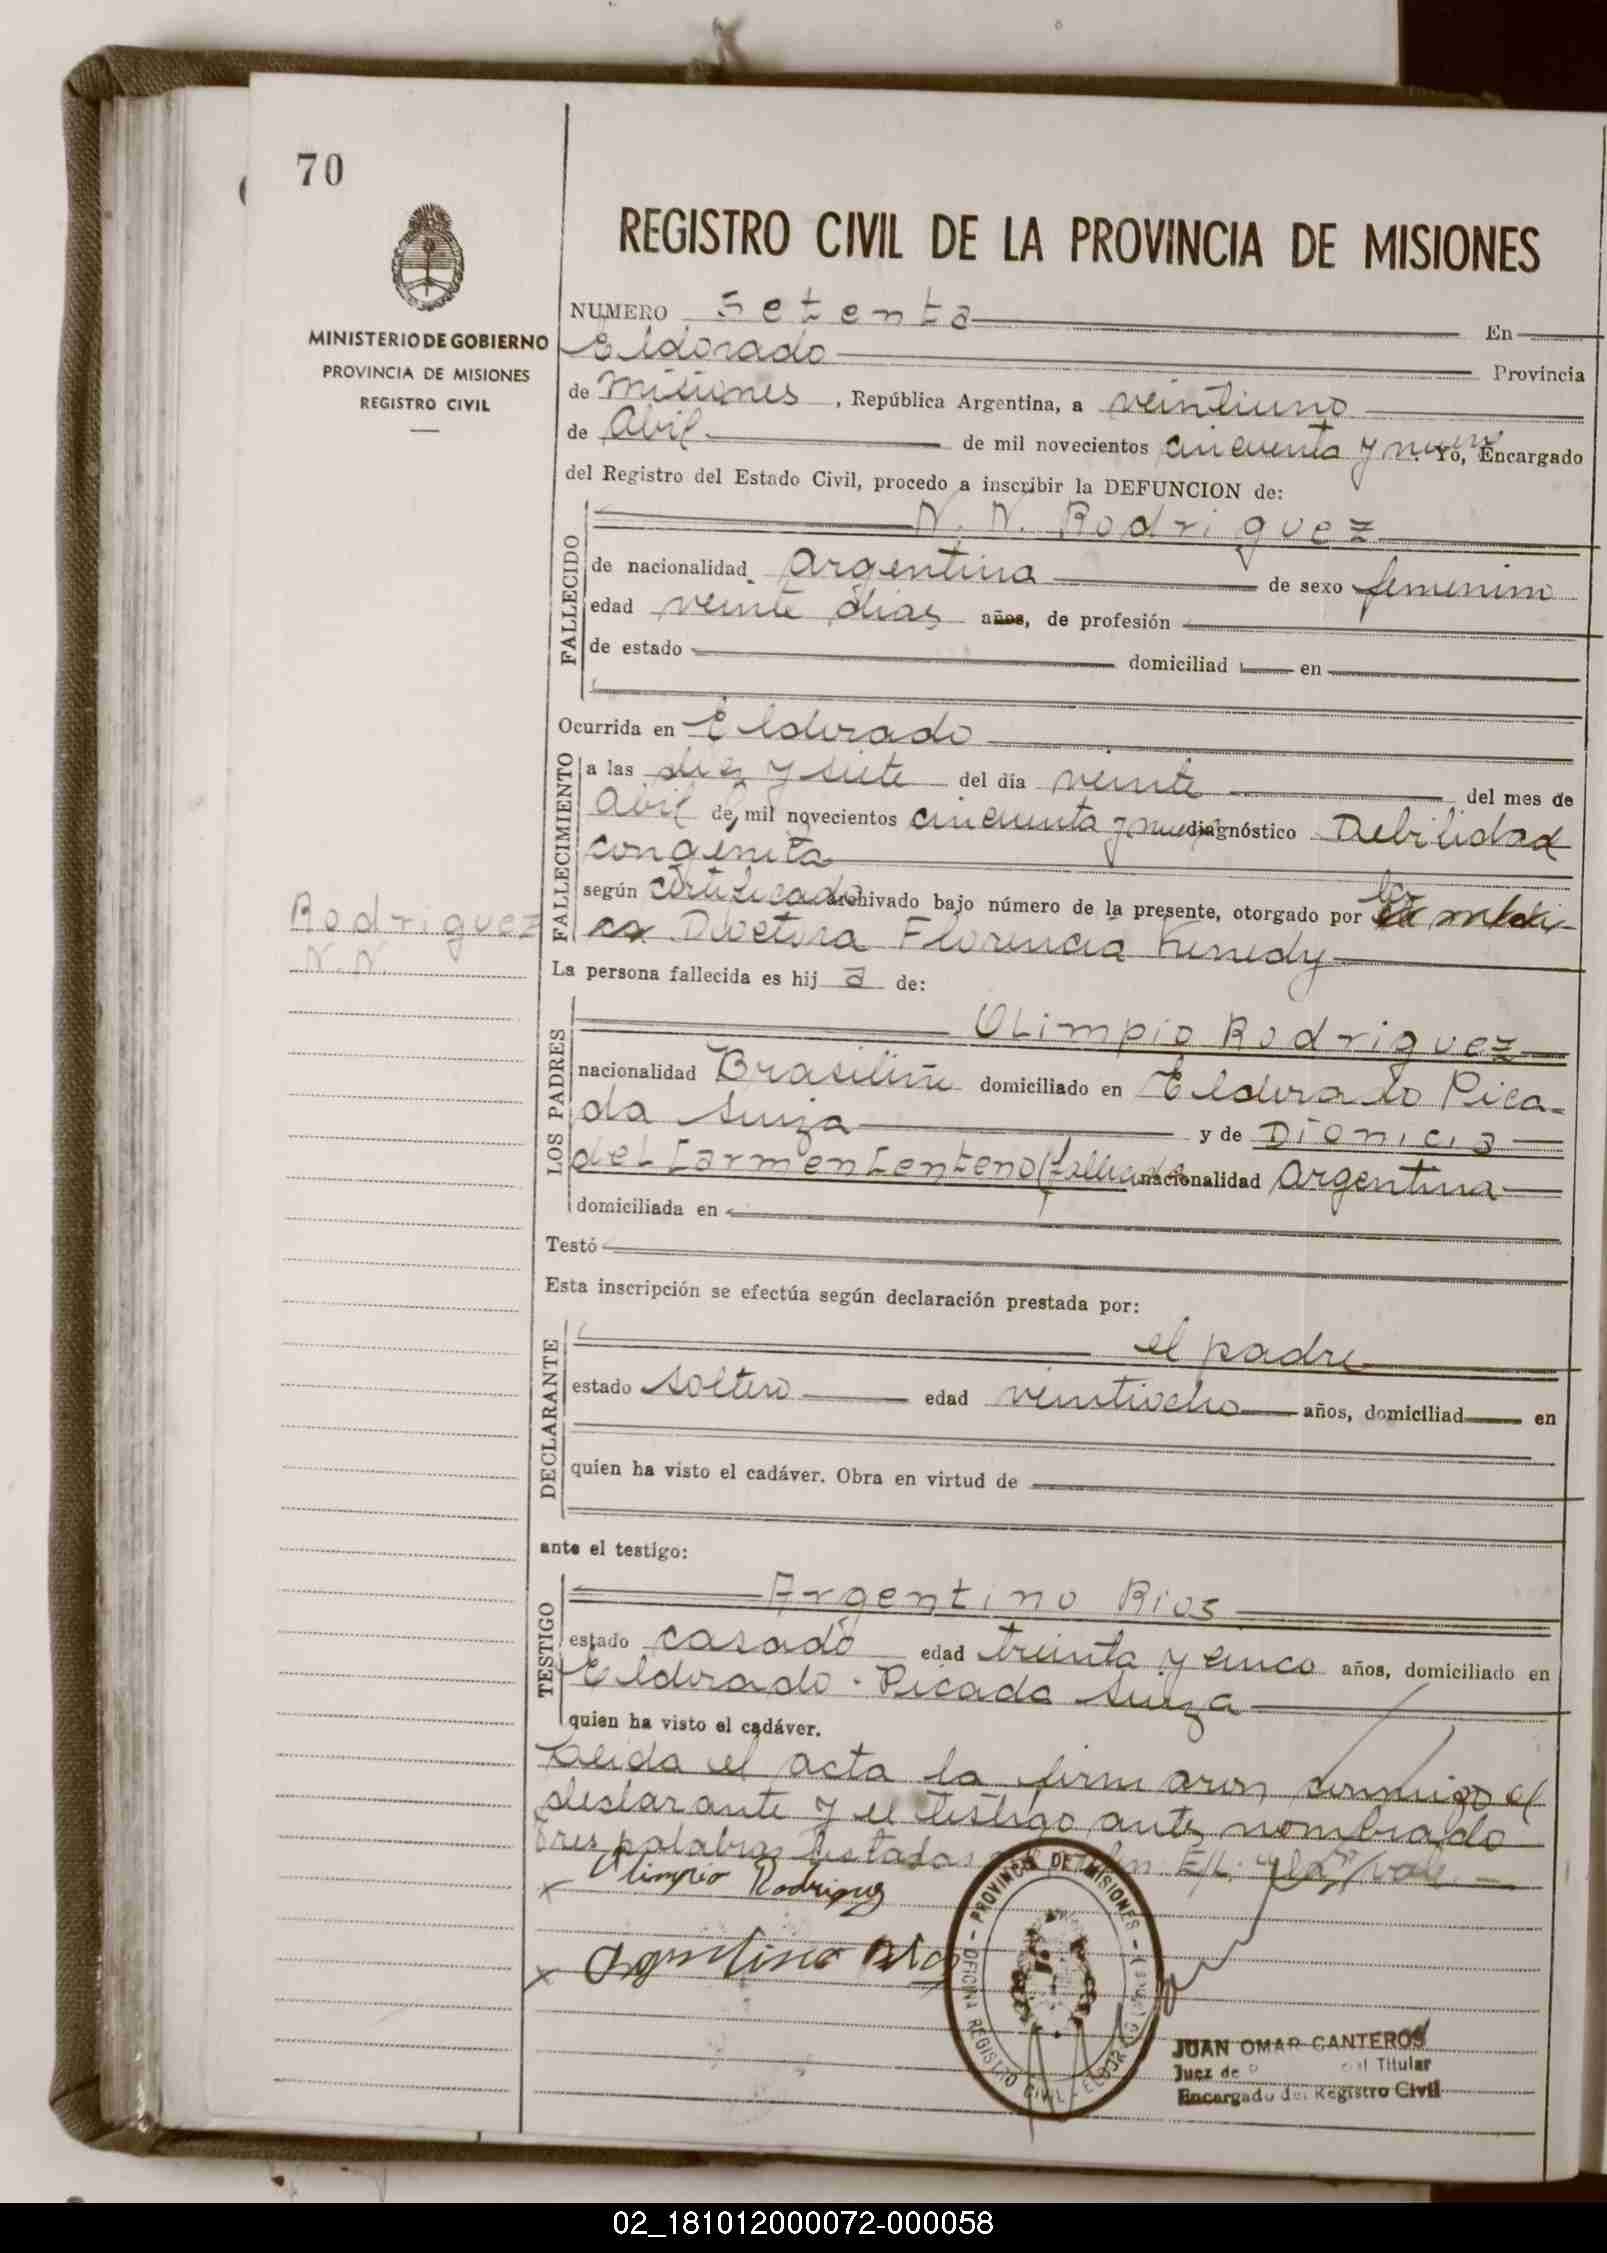 70
REGISTRO CIVIL DE LA PROVINCIA DE MISIONES
MINISTERIO DE GOBIERNO
PROVINCIA DE MISIONES
REGISTRO CIVIL
NUMERO Setenta En
Eldorado Provincia
de Misiones, República Argentina, a veintiuno
de Abil de mil novecientos cincuenta y nueve Yo, Encargado
del Registro del Estado Civil, procedo a inscribir la DEFUNCION de:
FALLECIDO
N. N. Rodriguez
de nacionalidad Argentina de sexo femenino
edad veinte dias años, de profesión
de estado domiciliad en
Ocurrida en Eldorado
FALLECIMIENTO
a las diez y siete del día veinte del mes de
Abil de mil novecientos cincuenta y nueve diagnóstico Debilidad
congenita
según certificado archivado bajo número de la presente, otorgado por la medi-
ca Doctora Florencia Kenedy
Rodriguez
N. N.
La persona fallecida es hij a de:
LOS PADRES
Olimpio Rodriguez
nacionalidad Brasileña domiciliado en Eldorado Pica-
da Suiza y de Dionicia
del Carmen Centeno (fallecida nacionalidad Argentina
domiciliada en
Testó
Esta inscripción se efectúa según declaración prestada por:
DECLARANTE
el padre
estado soltero edad veintiocho años, domiciliad en
quien ha visto el cadáver. Obra en virtud de
ante el testigo:
TESTIGO
Argentino Rios
estado casado edad treinta y cinco años, domiciliado en
Eldorado - Picada Suiza
quien ha visto el cadáver.
Leida el acta la firmaron conmigo el
declarante y el testigo antes nombrado
Tres palabras testadas E/L: vale.
x Olimpio Rodriguez
x Argentino Rios
PROVINCIA DE MISIONES
OFICINA REGISTRO CIVIL - ELDORADO
JUAN OMAR CANTEROS
Juez de Titular
Encargado del Registro Civil
02_181012000072-000058